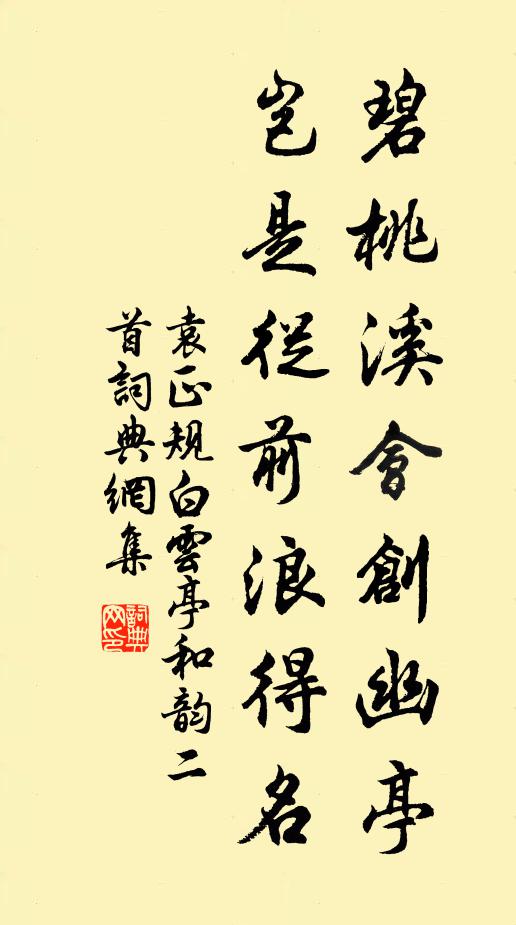 碧桃溪會創幽亭
豈是從前浪得名
袁正規白雲亭和韵二
首詞典網集
詞典网印